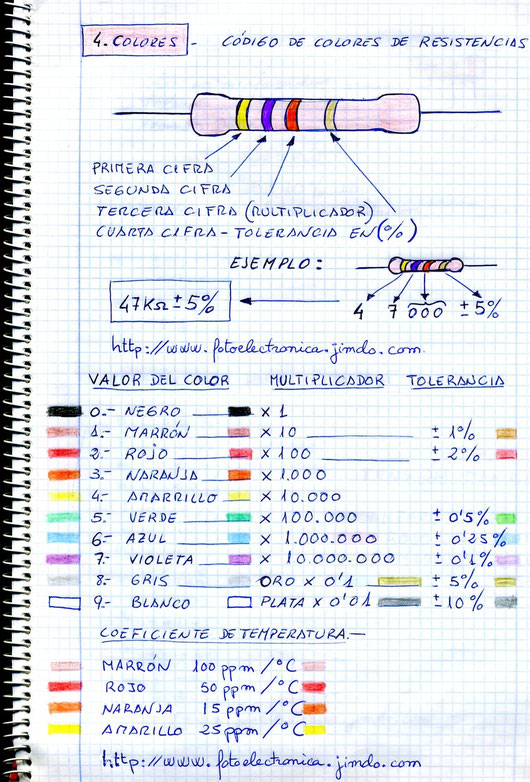 4. COLORES - CÓDIGO DE COLORES DE RESISTENCIAS
PRIMERA CIFRA
SEGUNDA CIFRA
TERCERA CIFRA (MULTIPLICADOR)
CUARTA CIFRA - TOLERANCIA EN (%)
EJEMPLO:
47KΩ ± 5%
4 7 000 ± 5%
http://www.fotoelectronica.jimdo.com
VALOR DEL COLOR MULTIPLICADOR TOLERANCIA
0.- NEGRO x 1
1.- MARRÓN x 10 ± 1%
2.- ROJO x 100 ± 2%
3.- NARANJA x 1.000
4.- AMARILLO x 10.000
5.- VERDE x 100.000 ± 0'5%
6.- AZUL x 1.000.000 ± 0'25%
7.- VIOLETA x 10.000.000 ± 0'1%
8.- GRIS ORO x 0'1 ± 5%
9.- BLANCO PLATA x 0'01 ± 10%
COEFICIENTE DE TEMPERATURA.-
MARRÓN 100 ppm /°C
ROJO 50 ppm /°C
NARANJA 15 ppm /°C
AMARILLO 25 ppm /°C
http://www.fotoelectronica.jimdo.com